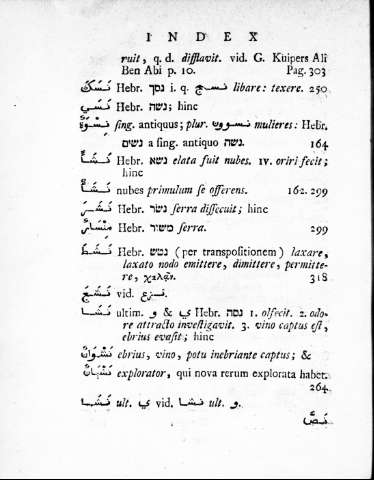 INDEX
ruit, q. d. difflavit. vid. G. Kuipers Ali
Ben Abi p. 10. Pag. 303
نَسَكَ Hebr. נסך i. q. نسج libare: texere. 250
نَسَي Hebr. נשה; hinc
نِسْوَةٌ sing. antiquus; plur. نسوون mulieres: Hebr.
נשים a sing. antiquo נשה. 164
نَشَأَ Hebr. נשא elata fuit nubes. IV. oriri fecit;
hinc
نَشَأٌ nubes primulum se offerens. 162. 299
نَشَرَ Hebr. נשר serra dissecuit; hinc
مِنْشَارٌ Hebr. משור serra. 299
نَشَطَ Hebr. נטש (per transpositionem) laxare,
laxato nodo emittere, dimittere, permitte-
re, χαλᾷν. 318
نَشَعَ vid. نزع.
نَشَا ultim. و & ي Hebr. נסה 1. olfecit. 2. odo-
re attracto investigavit. 3. vino captus est,
ebrius evasit; hinc
نَشْوَانٌ ebrius, vino, potu inebriante captus; &
نَشْيَانٌ explorator, qui nova rerum explorata habet.
264.
نَشَا ult. ي vid. نشا ult. و.
نَصَّ